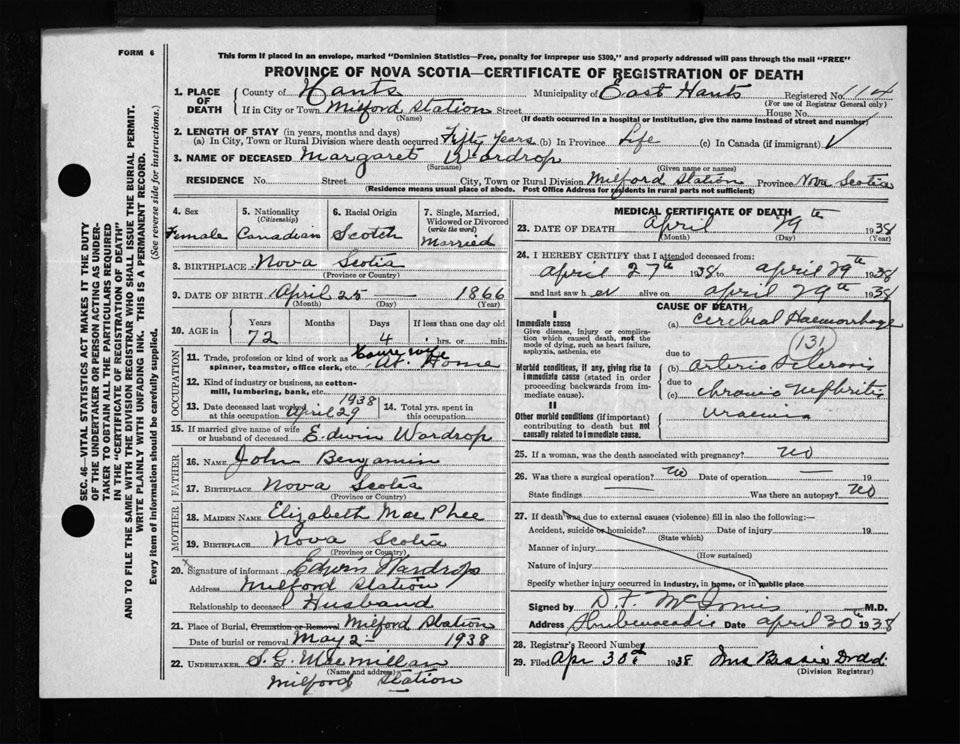 FORM 6
This form if placed in an envelope, marked "Dominion Statistics—Free, penalty for improper use $300," and properly addressed will pass through the mail "FREE"
PROVINCE OF NOVA SCOTIA—CERTIFICATE OF REGISTRATION OF DEATH
SEC. 46—VITAL STATISTICS ACT MAKES IT THE DUTY
OF THE UNDERTAKER OR PERSON ACTING AS UNDER-
TAKER TO OBTAIN ALL THE PARTICULARS REQUIRED
IN THE "CERTIFICATE OF REGISTRATION OF DEATH"
AND TO FILE THE SAME WITH THE DIVISION REGISTRAR WHO SHALL ISSUE THE BURIAL PERMIT.
WRITE PLAINLY WITH UNFADING INK. THIS IS A PERMANENT RECORD.
Every item of information should be carefully supplied. (See reverse side for instructions.)
1. PLACE OF DEATH
County of Hants Municipality of East Hants Registered No. 114
(For use of Registrar General only)
If in City or Town Milford Station Street House No.
(Name) (If death occurred in a hospital or institution, give the name instead of street and number)
2. LENGTH OF STAY (in years, months and days)
(a) In City, Town or Rural Division where death occurred Fifty Years (b) In Province Life (c) In Canada (if immigrant) ✓
3. NAME OF DECEASED Margaret Wardrop
(Surname) (Given name or names)
RESIDENCE No. Street City, Town or Rural Division Milford Station Province Nova Scotia
(Residence means usual place of abode. Post Office Address for residents in rural parts not sufficient)
4. Sex
Female
5. Nationality
(Citizenship)
Canadian
6. Racial Origin
Scotch
7. Single, Married,
Widowed or Divorced
(write the word)
Married
8. BIRTHPLACE Nova Scotia
(Province or Country)
9. DATE OF BIRTH April 25 — 1866
(Month) (Day) (Year)
10. AGE in
Years Months Days If less than one day old
72 4 hrs. or min.
OCCUPATION
11. Trade, profession or kind of work as House wife
spinner, teamster, office clerk, etc. At Home
12. Kind of industry or business, as cotton-
mill, lumbering, bank, etc.
13. Date deceased last worked 1938
at this occupation April 29
14. Total yrs. spent in
this occupation
15. If married give name of wife
or husband of deceased Edwin Wardrop
FATHER
16. NAME John Benjamin
17. BIRTHPLACE Nova Scotia
(Province or Country)
MOTHER
18. MAIDEN NAME Elizabeth MacPhee
19. BIRTHPLACE Nova Scotia
(Province or Country)
20. Signature of informant Edwin Wardrop
Address Milford Station
Relationship to deceased Husband
21. Place of Burial, Cremation or Removal Milford Station
Date of burial or removal May 2 — 1938
22. UNDERTAKER S. G. Macmillan
(Name and address)
Milford Station
MEDICAL CERTIFICATE OF DEATH
23. DATE OF DEATH April 29th 1938
(Month) (Day) (Year)
24. I HEREBY CERTIFY that I attended deceased from:
April 27th 1938 to April 29th 1938
and last saw her alive on April 29th 1938
CAUSE OF DEATH
I
Immediate cause
Give disease, injury or complica-
tion which caused death, not the
mode of dying, such as heart failure,
asphyxia, asthenia, etc
(a) Cerebral Haemorrhage
(131)
Morbid conditions, if any, giving rise to
immediate cause (stated in order
proceeding backwards from im-
mediate cause).
due to
Arterio Sclerosis
due to
(c) Chronic Nephritis
Uraemia
II
Other morbid conditions (if important)
contributing to death but not
causally related to immediate cause.
25. If a woman, was the death associated with pregnancy? No
26. Was there a surgical operation? No Date of operation — 19
State findings — Was there an autopsy? No
27. If death was due to external causes (violence) fill in also the following:—
Accident, suicide or homicide? Date of injury 19
(State which)
Manner of injury
(How sustained)
Nature of injury
Specify whether injury occurred in industry, in home, or in public place
Signed by D. F. McInnis M.D.
Address Shubenacadie Date April 30th 1938
28. Registrar's Record Number
29. Filed Apr 30th 1938 Mrs Bessie Dodd
(Division Registrar)